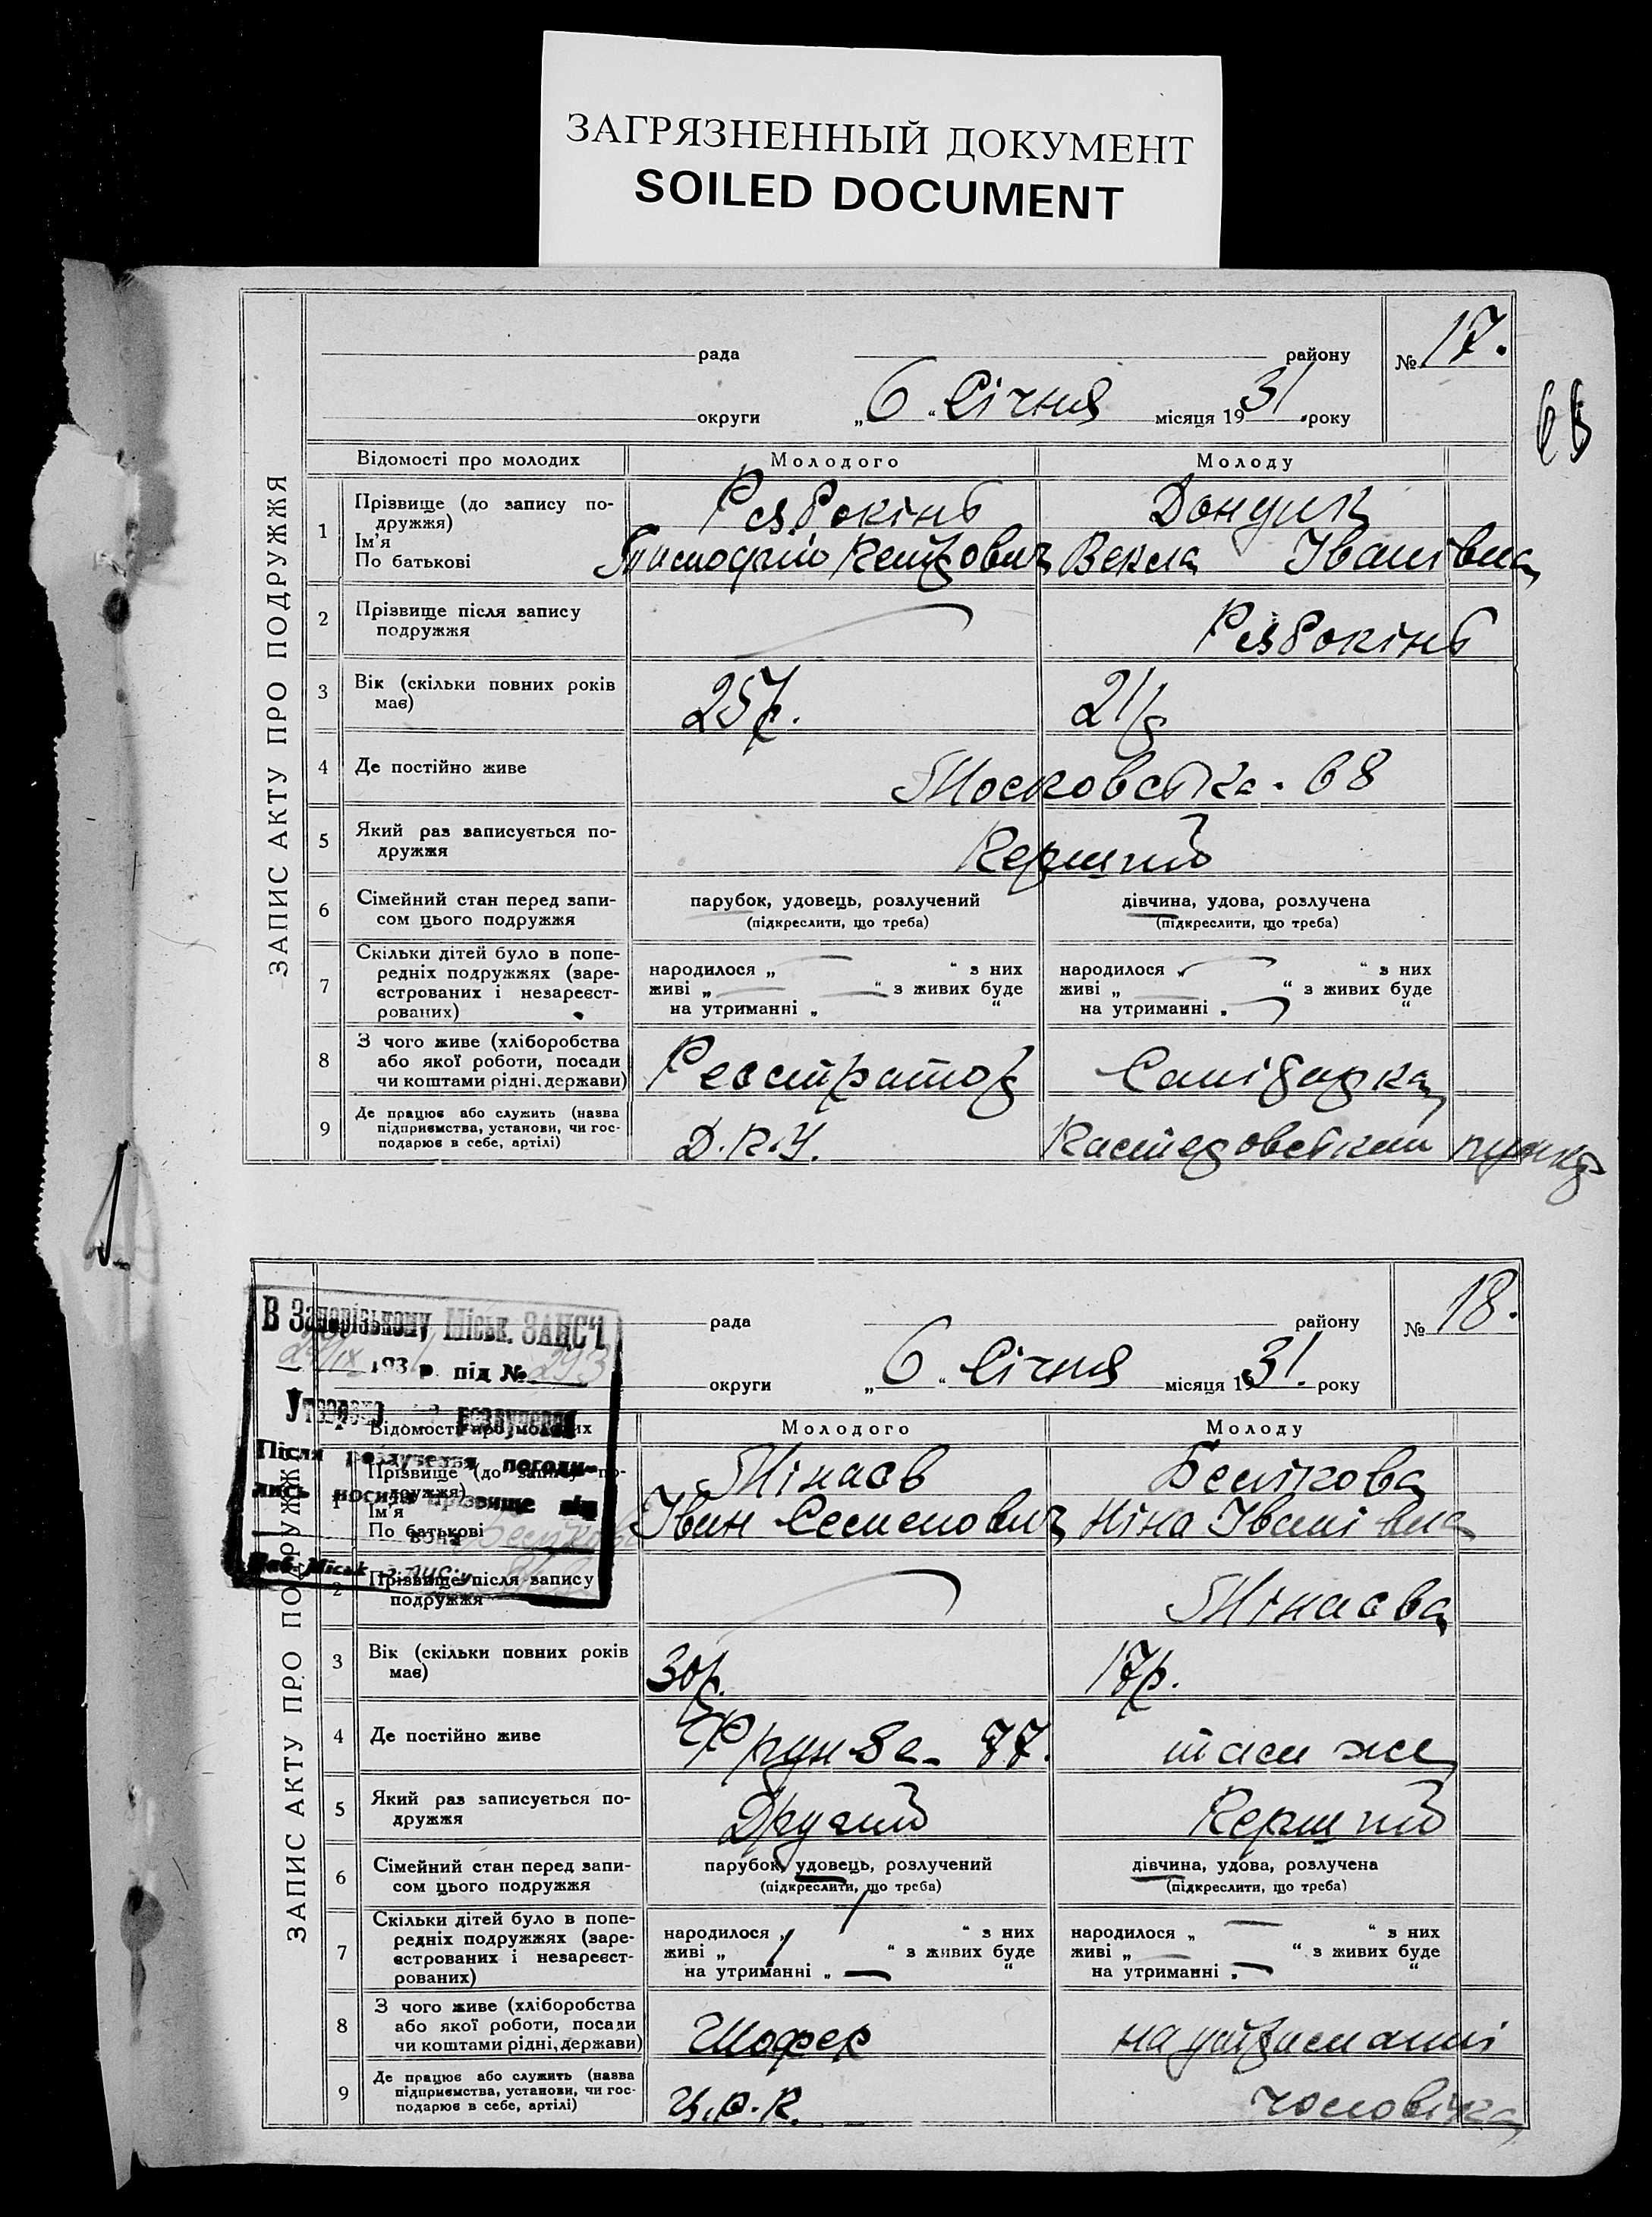 ЗАГРЯЗНЕННЫЙ ДОКУМЕНТ
SOILED DOCUMENT
ЗАПИС АКТУ ПРО ПОДРУЖЖЯ
рада району № 17.
округи „6“ Січня місяця 1931 року
Відомості про молодих Молодого Молоду
1 Прізвище (до запису подружжя) Рябокінь Дондик
Ім'я
По батькові Тимофій Петрович Векла Іванівна
2 Прізвище після запису
подружжя Рябокінь
3 Вік (скільки повних років
має) 25р. 21р
4 Де постійно живе Московська. 68
5 Який раз записується по-
дружжя Перший
6 Сімейний стан перед запи- парубок, удовець, розлучений дівчина, удова, розлучена
сом цього подружжя (підкреслити, що треба) (підкреслити, що треба)
7 Скільки дітей було в попе-
редніх подружжях (заре- народилося „ “ з них народилося „ “ з них
єстрованих і незареєст- живі „ “ з живих буде живі „ “ з живих буде
рованих) на утриманні „ “ на утриманні „ “
8 З чого живе (хліборобства
або якої роботи, посади
чи коштами рідні, держави) Реєстратор Санітарка
9 Де працює або служить (назва
підприємства, установи, чи гос-
подарює в себе, артілі) Д.П.У. Пастеровський пункт
ЗАПИС АКТУ ПРО ПОДРУЖЖЯ
рада району № 18.
округи „6“ Січня місяця 1931. року
В Запорізькому Міськ. ЗАГСЧ
193 р. під № 293
Після розлучення погоди-
лись носити прізвище він
вона Белікова
Відомості про молодих Молодого Молоду
1 Прізвище (до запису по-
дружжя) Мінаєв Белікова
Ім'я
По батькові Іван Семенович Ніна Іванівна
2 Прізвище після запису
подружжя Мінаєва
3 Вік (скільки повних років
має) 30р. 17р.
4 Де постійно живе Фрунзе 77. там же
5 Який раз записується по-
дружжя Другий Перший
6 Сімейний стан перед запи- парубок, удовець, розлучений дівчина, удова, розлучена
сом цього подружжя (підкреслити, що треба) (підкреслити, що треба)
7 Скільки дітей було в попе-
редніх подружжях (заре- народилося „ “ з них народилося „ “ з них
єстрованих і незареєст- живі „ “ з живих буде живі „ “ з живих буде
рованих) на утриманні „ “ на утриманні „ “
8 З чого живе (хліборобства
або якої роботи, посади
чи коштами рідні, держави) Шофер на утриманні
9 Де працює або служить (назва
підприємства, установи, чи гос-
подарює в себе, артілі) Ц.Р.К. чоловіка